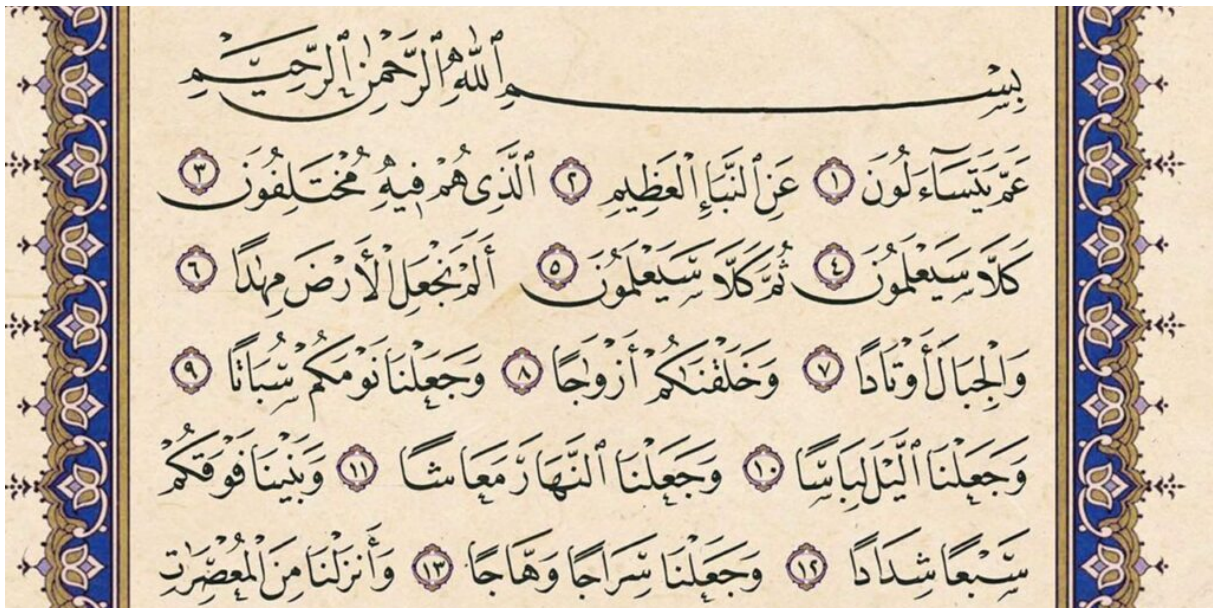 بِسْمِ ٱللَّهِ ٱلرَّحْمَٰنِ ٱلرَّحِيمِ
عَمَّ يَتَسَآءَلُونَ ١ عَنِ ٱلنَّبَإِ ٱلْعَظِيمِ ٢ ٱلَّذِى هُمْ فِيهِ مُخْتَلِفُونَ ٣
كَلَّا سَيَعْلَمُونَ ٤ ثُمَّ كَلَّا سَيَعْلَمُونَ ٥ أَلَمْ نَجْعَلِ ٱلْأَرْضَ مِهَٰدًا ٦
وَٱلْجِبَالَ أَوْتَادًا ٧ وَخَلَقْنَٰكُمْ أَزْوَٰجًا ٨ وَجَعَلْنَا نَوْمَكُمْ سُبَاتًا ٩
وَجَعَلْنَا ٱلَّيْلَ لِبَاسًا ١٠ وَجَعَلْنَا ٱلنَّهَارَ مَعَاشًا ١١ وَبَنَيْنَا فَوْقَكُمْ
سَبْعًا شِدَادًا ١٢ وَجَعَلْنَا سِرَاجًا وَهَّاجًا ١٣ وَأَنزَلْنَا مِنَ ٱلْمُعْصِرَٰتِ